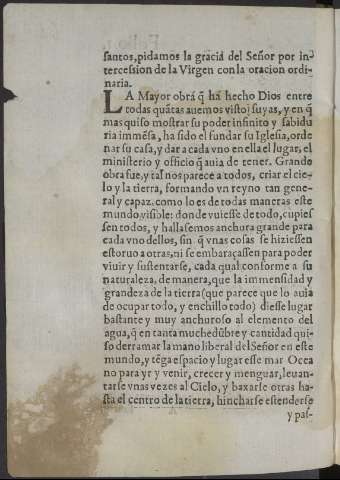 santos,pidamos la gracia del Señor por in-
tercession de la Virgen con la oracion ordi-
naria.
LA Mayor obra q̃ ha hecho Dios entre
todas quãtas auemos visto suyas, y en q̃
mas quiso mostrar su poder infinito y sabidu
ria immẽsa, ha sido el fundar su Iglesia, orde
nar su casa, y dar a cada vno en ella el lugar, el
ministerio y officio q̃ auia de tener. Grande
obra fue, y tal nos parece a todos, criar el cie-
lo y la tierra, formando vn reyno tan gene-
ral y capaz, como lo es de todas maneras este
mundo visible: donde vuiesse de todo, cupies
sen todos, y hallasemos anchura grande para
cada vno dellos, sin q̃ vnas cosas se hiziessen
estoruo a otras, ni se embaraçassen para poder
viuir y sustentarse, cada qual conforme a su
naturaleza, de manera, que la immensidad y
grandeza de la tierra (que parece que lo auia
de ocupar todo, y enchillo todo) diesse lugar
bastante y muy anchuroso al elemento del
agua, q̃ en tanta muchedũbre y cantidad qui-
so derramar la mano liberal del Señor en este
mundo, y tẽga espacio y lugar esse mar Ocea
no para yr y venir, crecer y menguar, leuan-
tarse vnas vezes al Cielo, y baxarse otras ha-
sta el centro de la tierra, hincharse estenderse
y pas-